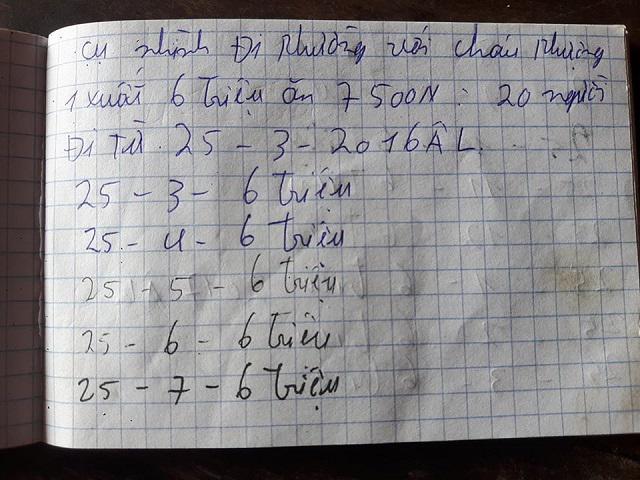 cụ nhình Đi phường với cháu phượng
1 xuất 6 triệu ăn 7500N : 20 người
Đi Từ. 25 - 3 - 2016 ÂL.
25 - 3 - 6 triệu
25 - 4 - 6 triệu
25 - 5 - 6 triệu
25 - 6 - 6 triệu
25 - 7 - 6 triệu